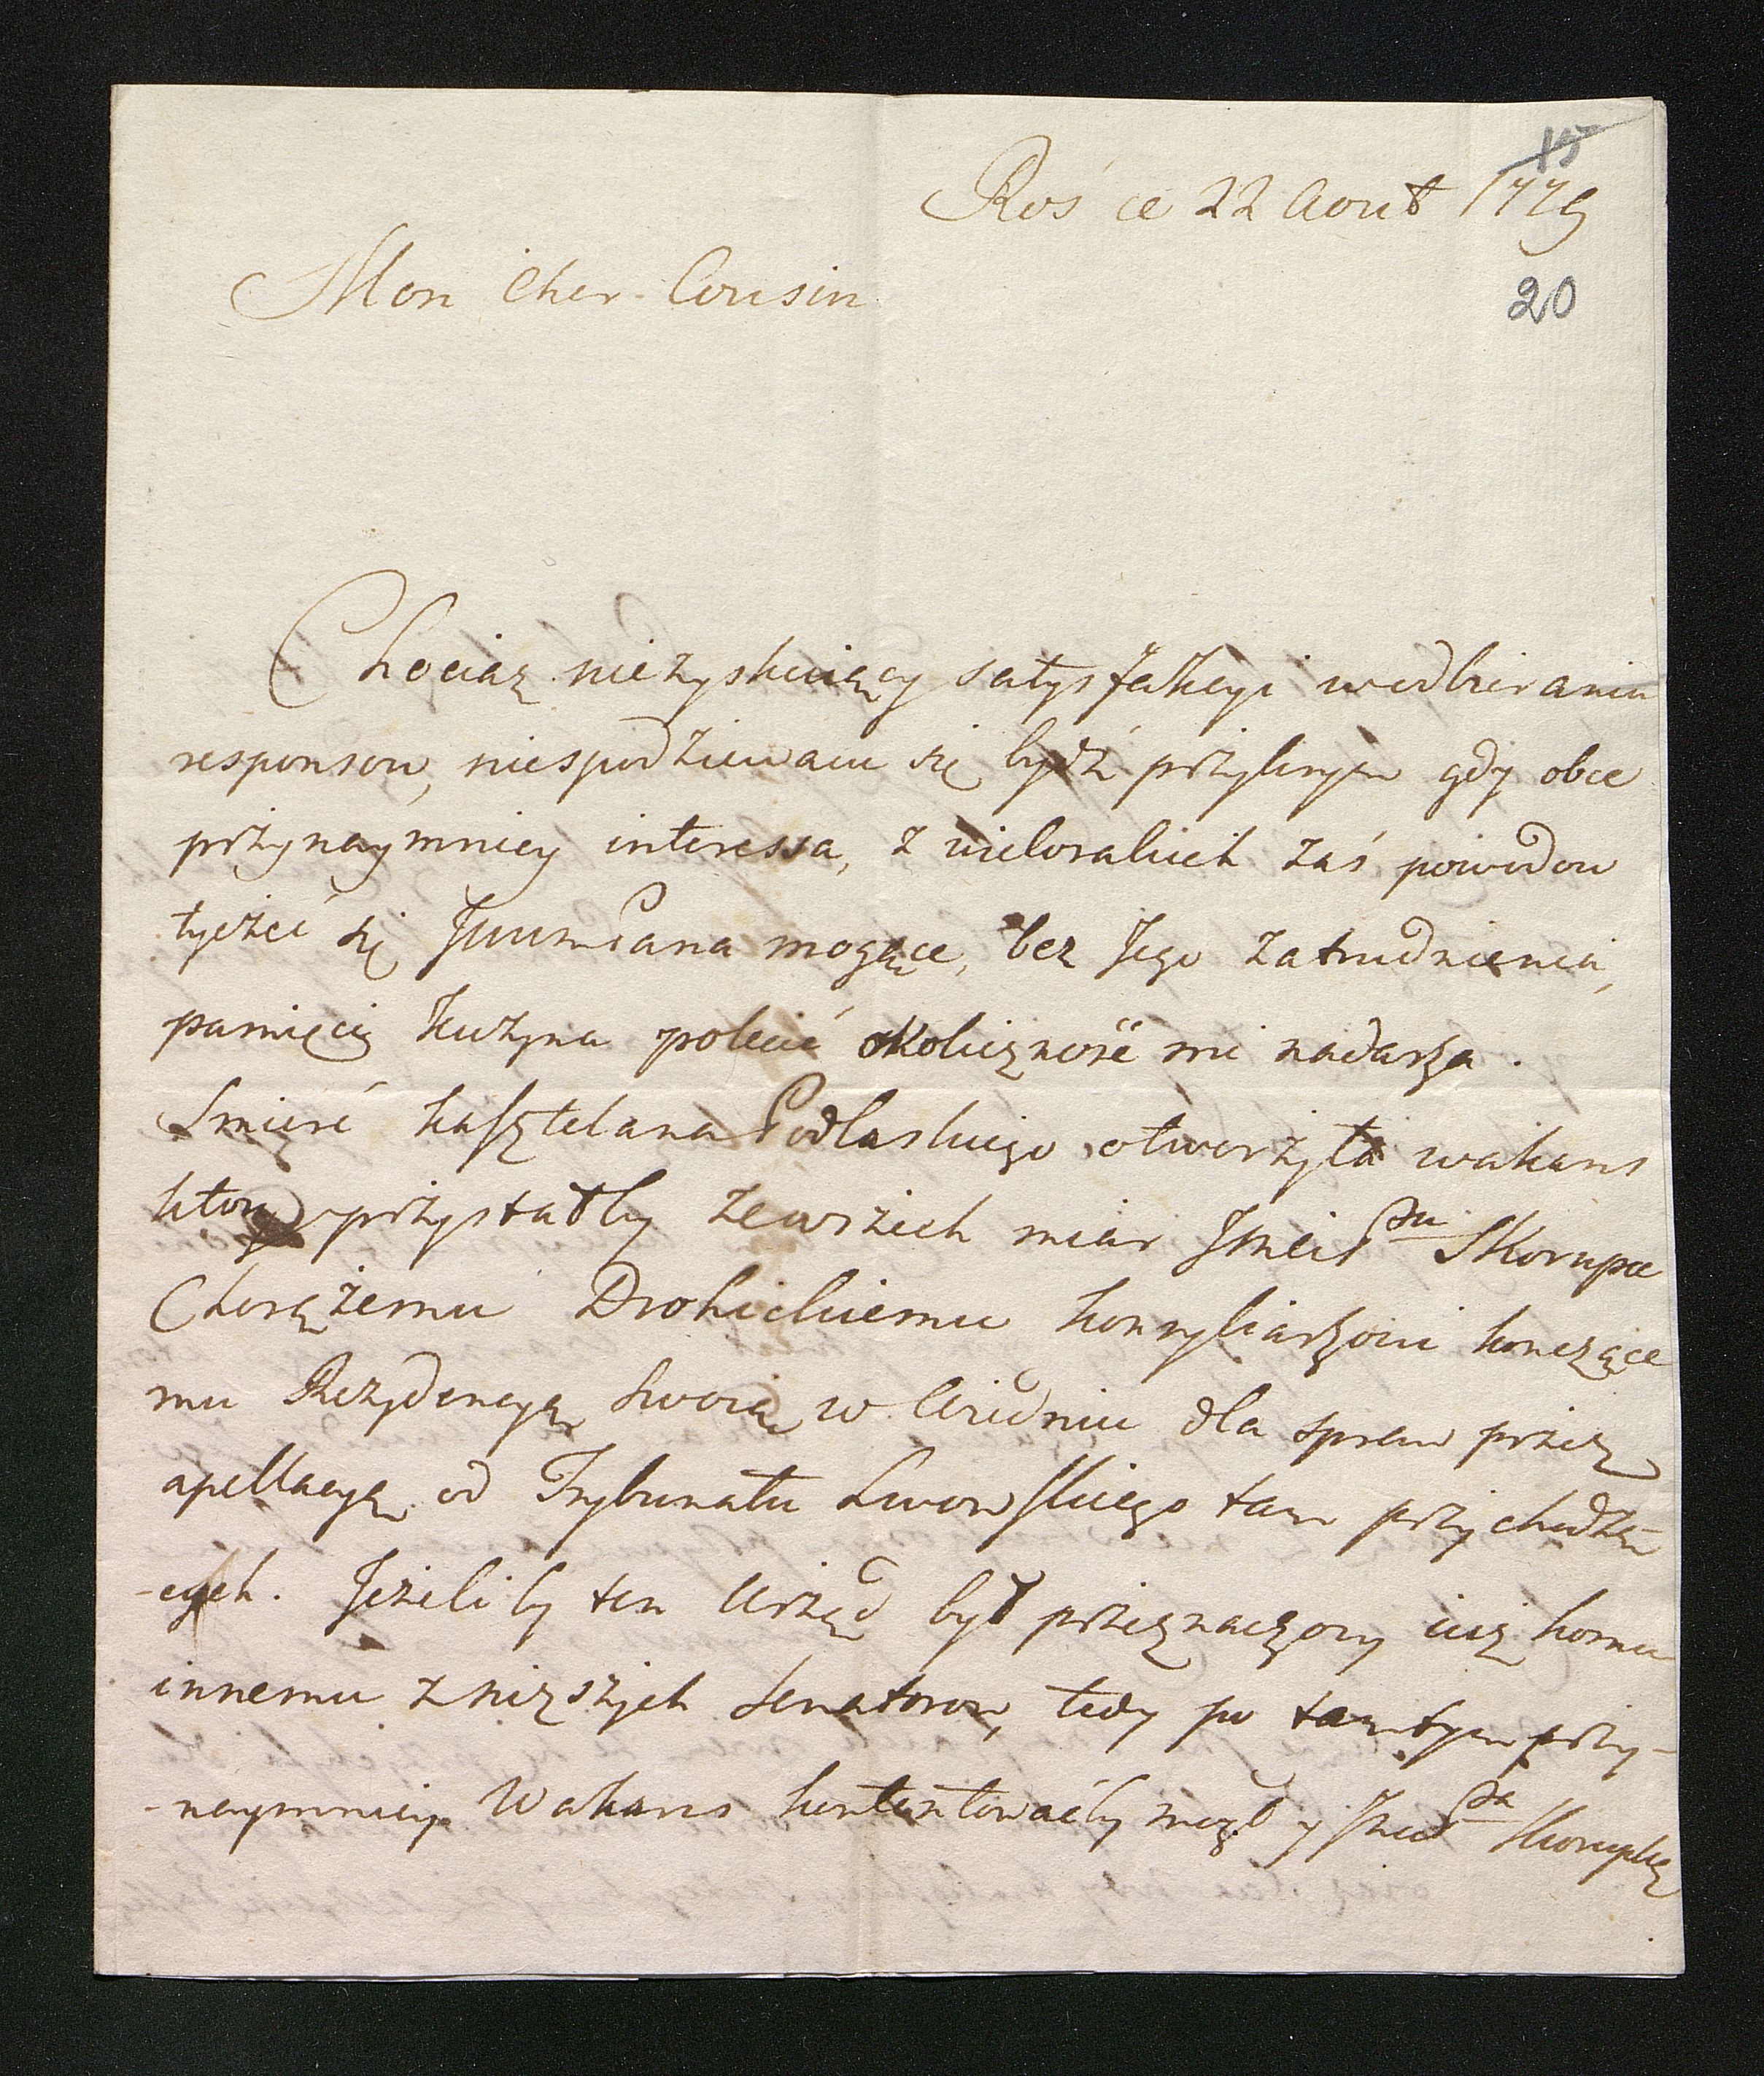 15
Roś ce 22 Aout 1779
20
Mon cher Cousin
Chociaz niezyskuiący satysfakcyi wodbieraniu
responsow, niespodziewam się bydź przykrym gdy obce
przynaymniey interessa, z wielorakich zaś powodow
tyczeć się JWWMPana mogące, bez Jego zatrudnienia,
pamięci Kuzyna polecić okoliczność mi nadarza.
Smierć kasztelana Podlaskiego otworzyła wakans
ktory przystałby zewszech miar JmciPu Skorupce
Chorążemu Drohickiemu konsyliarzowi kończące
mu Rezydencyą swoią w Wiedniu dla spraw przez
apellacyą od Trybunału Lwowskiego tam przychodzą-
-cych. Jeżeliby ten Urząd był przeznaczony iuz komu
innemu z nizszych senatorow, tedy po tamtym przy-
-naymniey Wakans kontentowaćby mogł y JmciPa Skorupkę